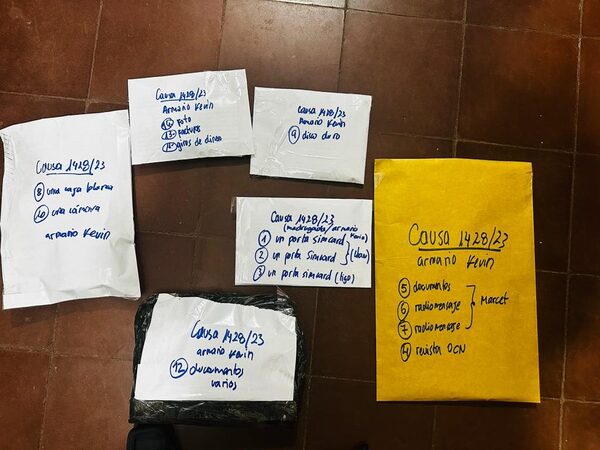 Causa 1428/23
Armario Kevin
14 foto
13 facturas
15 giros de dinero
Causa 1428/23
Armario Kevin
9 disco duro
Causa 1428/23
8 una caja blanca
10 una cámara
armario Kevin
Causa 1428/23
(madrugada/armario Kevin)
1 un porta simcard
2 un porta simcard
3 un porta simcard (tigo)
Causa 1428/23
armario Kevin
5 documentos
6 radiomensage
Marcet
7 radiomensage
4 revista OCN
Causa 1428/23
armario Kevin
12 documentos
varios